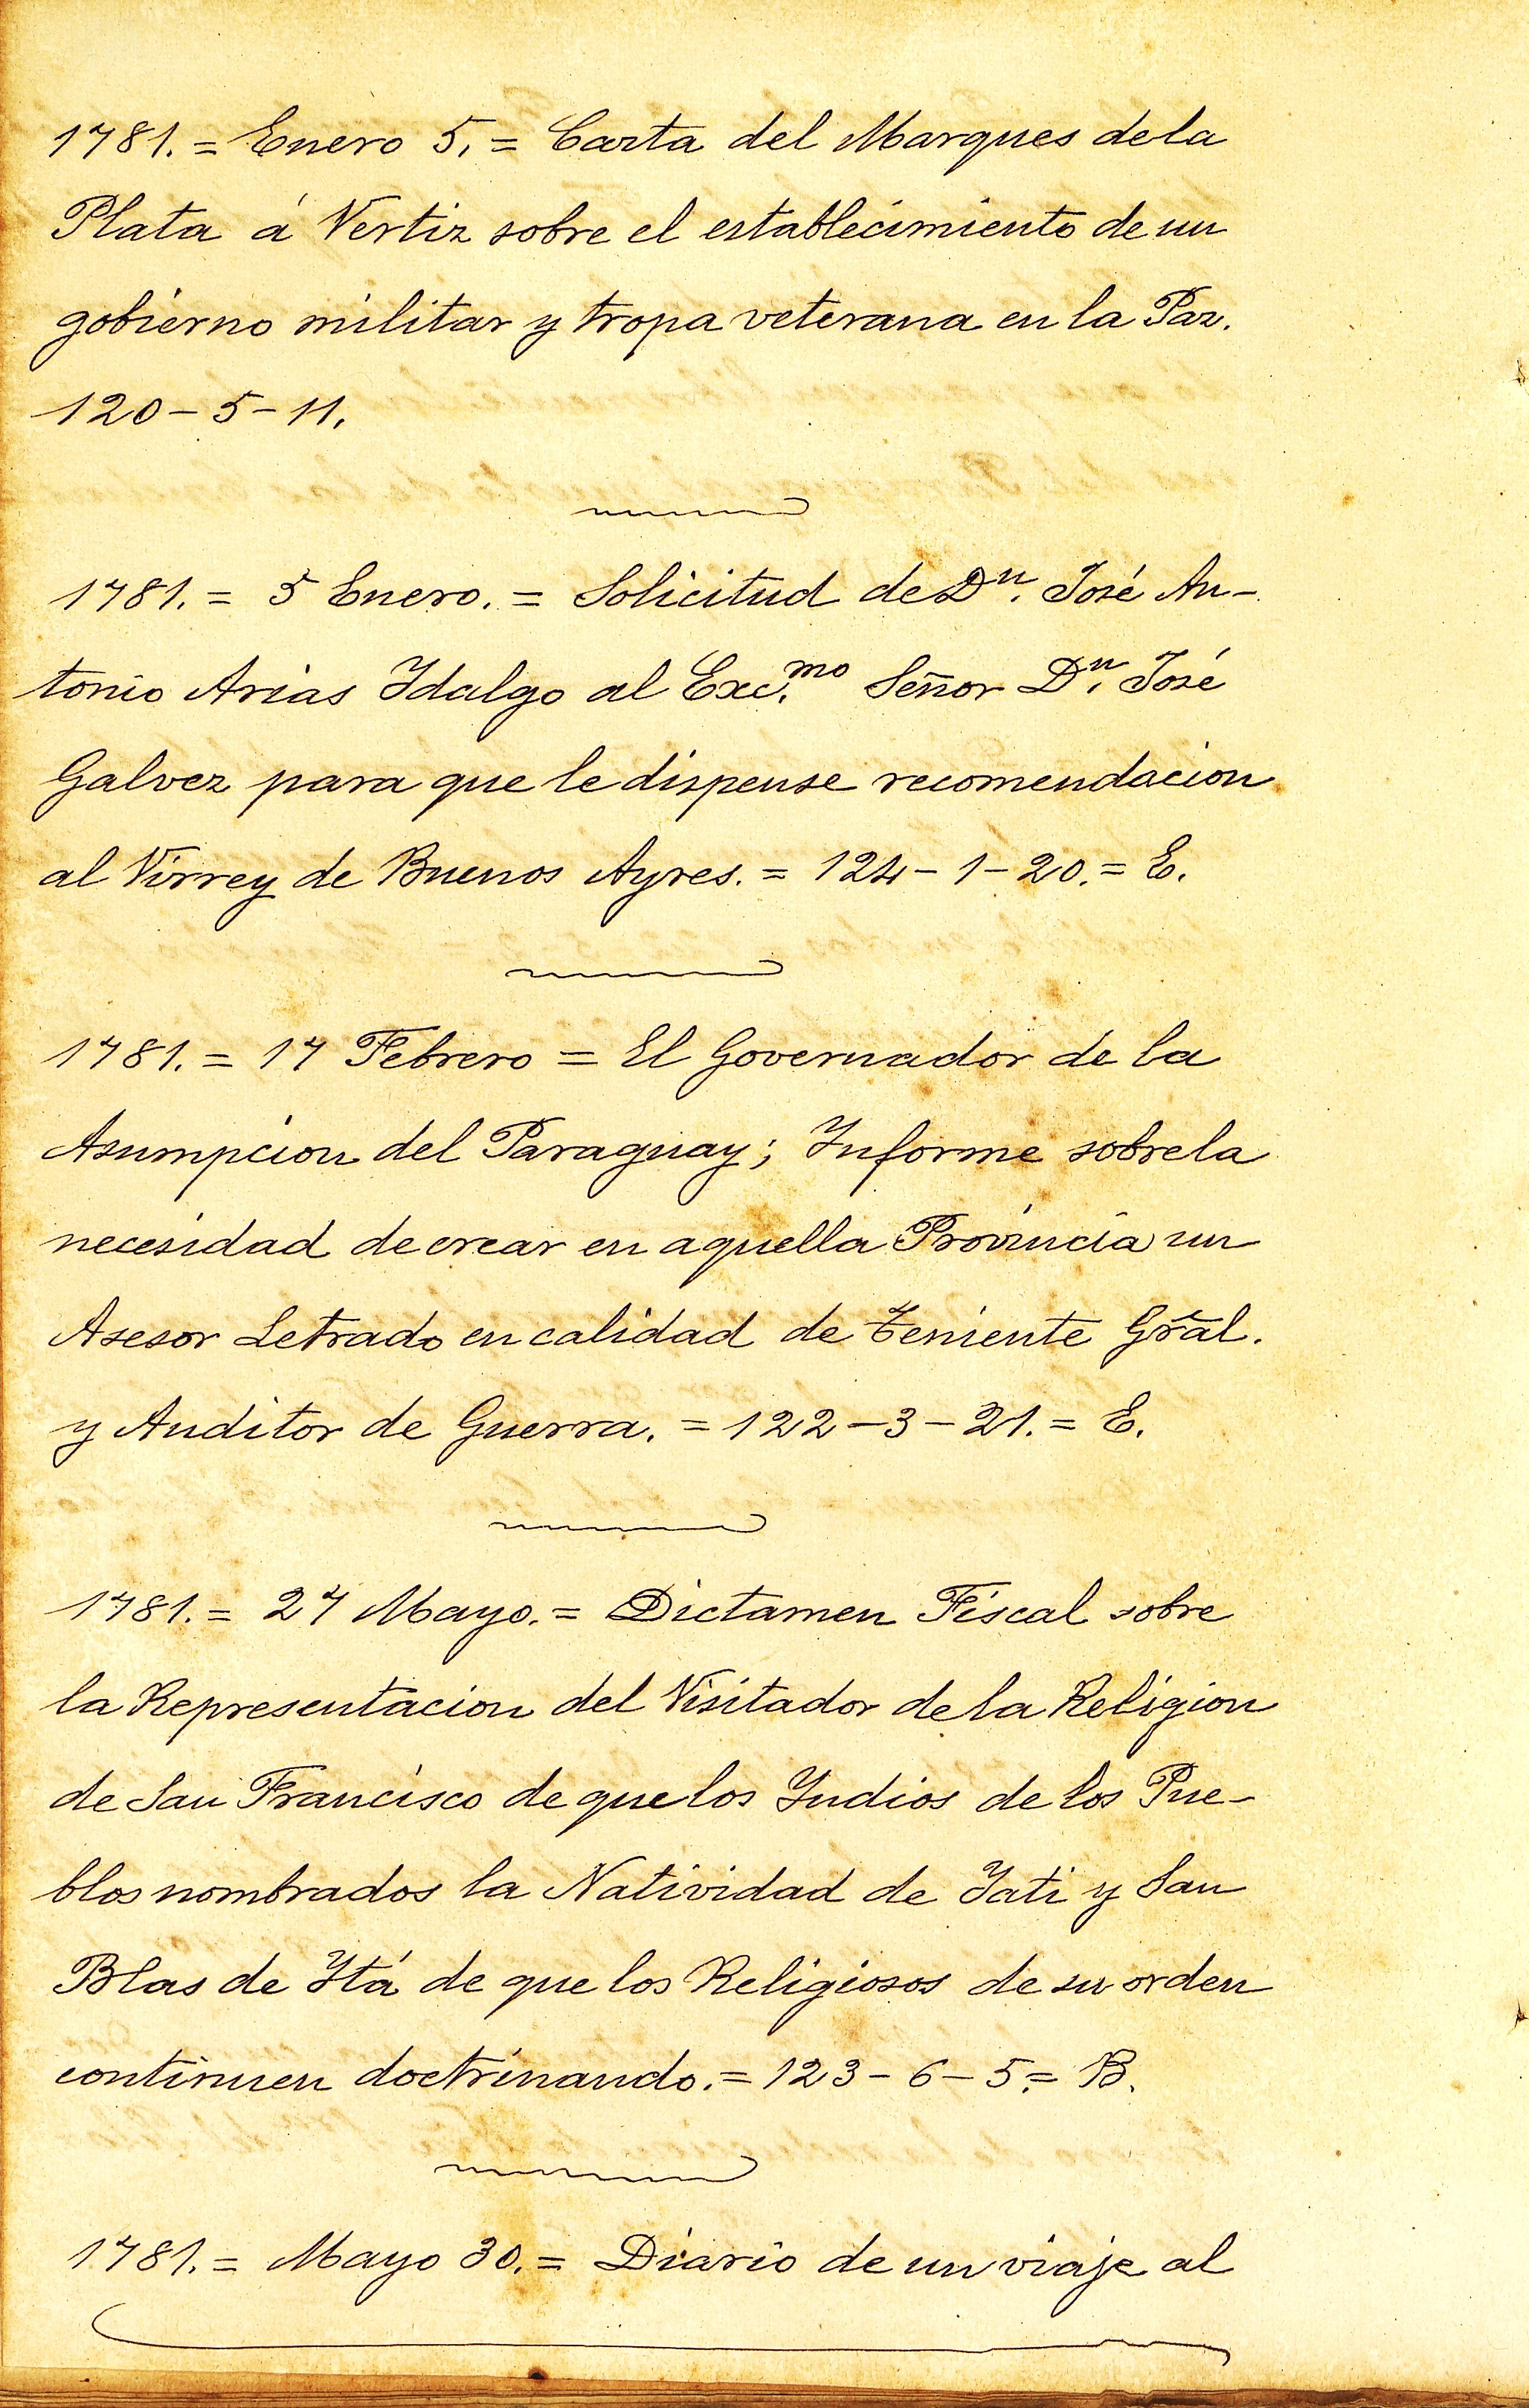 1781. = Enero 5. = Carta del Marques dela
Plata á Vertiz sobre el establecimiento de un
gobierno militar y tropa veterana en la Paz.
120-5-11.
1781. = 5 Enero. = Solicitud de Dⁿ. José An-
tonio Arias Ydalgo al Exc.ᵐᵒ Señor Dⁿ. José
Galvez para que le dispense recomendacion
al Virrey de Buenos Ayres. = 124-1-20. = E.
1781. = 17 Febrero = El Governador de la
Asumpcion del Paraguay; Informe sobre la
necesidad de crear en aquella Provincia un
Asesor Letrado en calidad de Teniente Gr̃al.
y Auditor de Guerra. = 122-3-21. = E.
1781. = 27 Mayo. = Dictamen Fiscal sobre
la Representacion del Visitador de la Religion
de San Francisco de que los Yndios de los Pue-
blos nombrados la Natividad de Yati y San
Blas de Ytá de que los Religiosos de su orden
continuen doctrinando. = 123-6-5. = B.
1781. = Mayo 30. = Diario de un viaje al